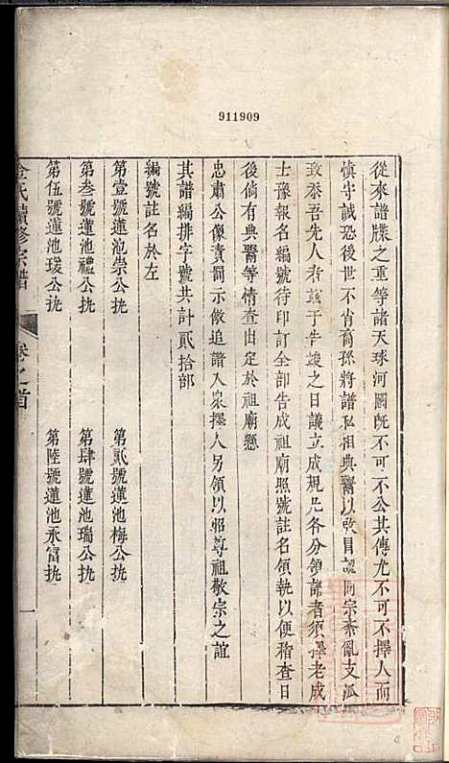 911909
從來譜牒之重等諸天球河圖既不可不公其傳尤不可不擇人而
慎守誠恐後世不肖裔孫將譜私祖典鬻以致目認同宗紊亂支派
致忝吾先人者茲于告竣之日議立成規凡各分領譜者須擇老成
士豫報名編號待印訂全部告成祖廟照號註名領執以便稽查日
後倘有典鬻等情查出定於祖廟懸
忠肅公像責罰示儆追譜入眾擇人另領以昭尊祖敬宗之誼
其譜編排字號共計貳拾部
編號註名於左
第壹號蓮池崇公執 第貳號蓮池梅公執
第叁號蓮池禮公執 第肆號蓮池瑞公執
第伍號蓮池瑗公執 第陸號蓮池永富公執
氏續修宗譜 卷之首 一